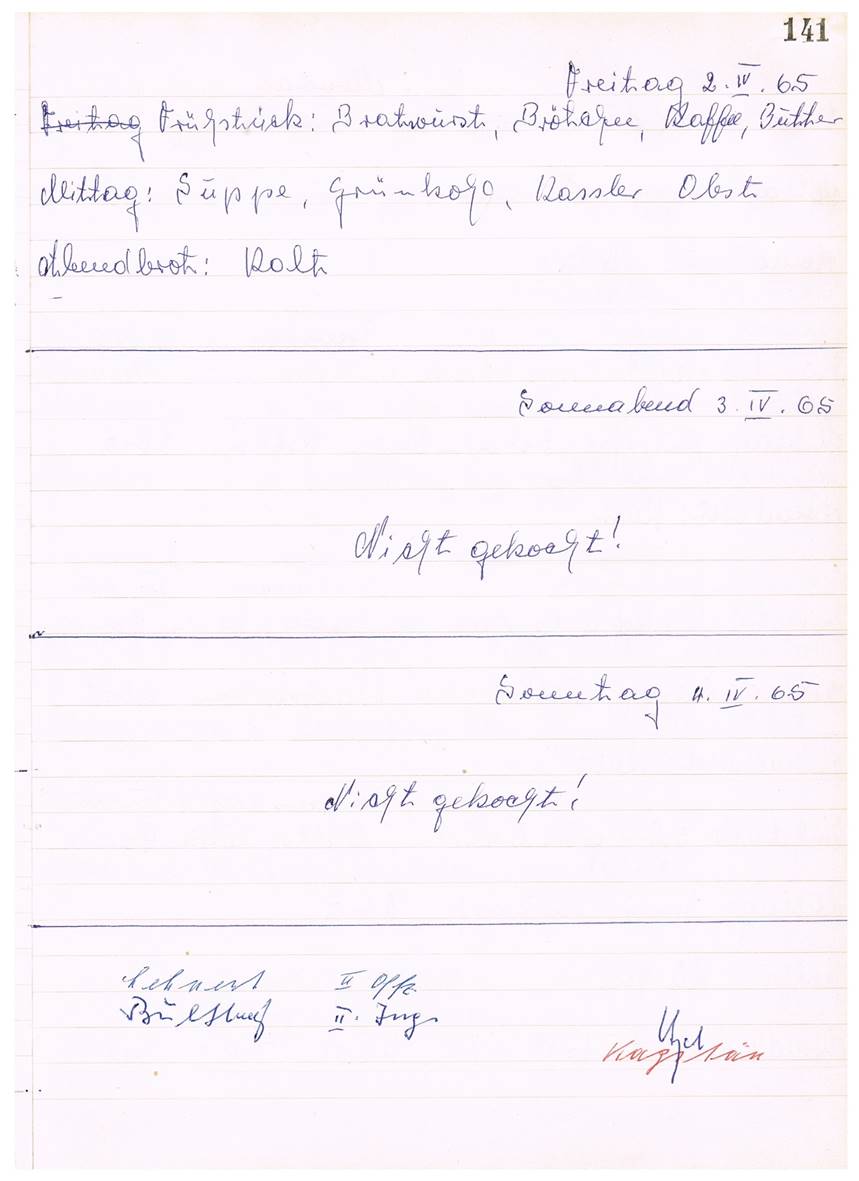 141
Freitag 2. IV. 65
Freitag Frühstück: Bratwurst, Brötchen, Kaffee, Butter
Mittag: Suppe, Grünkohl, Kassler Obst
Abendbrot: Kalt
Sonnabend 3. IV. 65
Nicht gekocht!
Sonntag 4. IV. 65
Nicht gekocht!
Lehnert II Offz.
II. Ing.
Kapitän